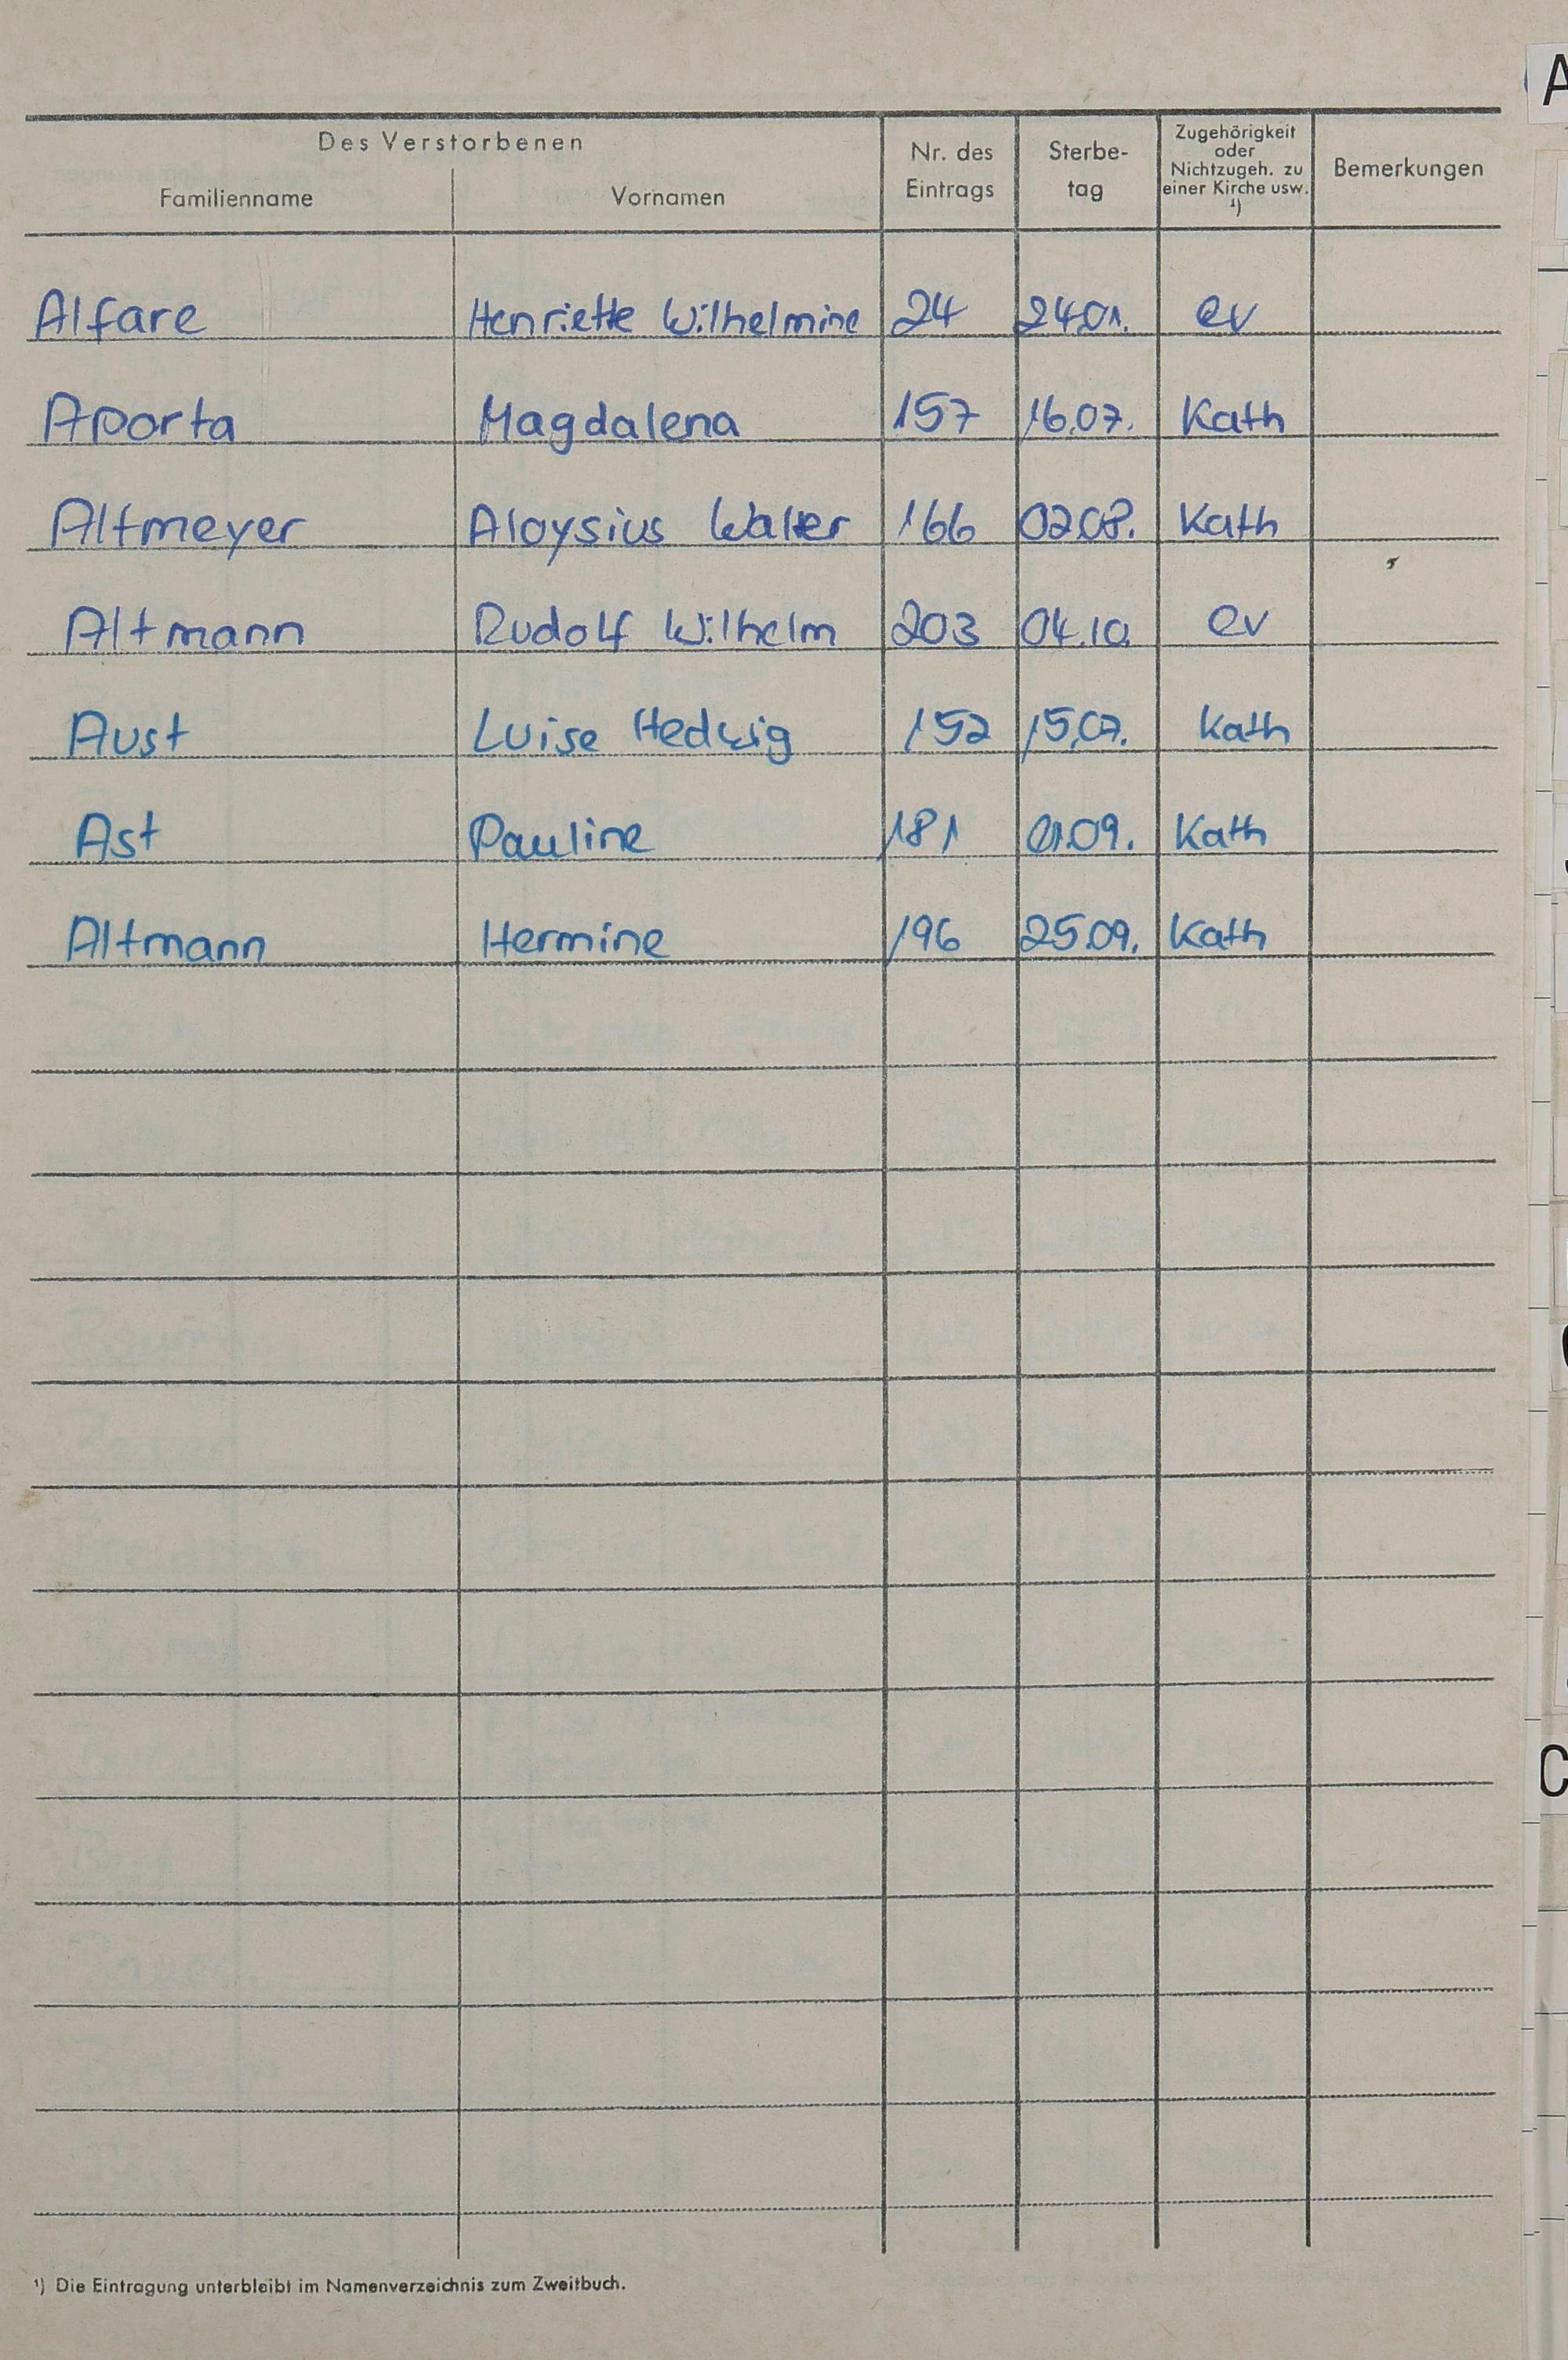 Des Verstorbenen
Familienname Vornamen Nr. des Eintrags Sterbe- tag Zugehörigkeit oder Nichtzugeh. zu einer Kirche usw. ¹) Bemerkungen
Alfare Henriette Wilhelmine 24 24.01. ev
Aporta Magdalena 157 16.07. Kath
Altmeyer Aloysius Walter 166 02.08. Kath
Altmann Rudolf Wilhelm 203 04.10. ev
Aust Luise Hedwig 152 15.07. Kath
Ast Pauline 181 01.09. Kath
Altmann Hermine 196 25.09. Kath
¹) Die Eintragung unterbleibt im Namenverzeichnis zum Zweitbuch.
A
C